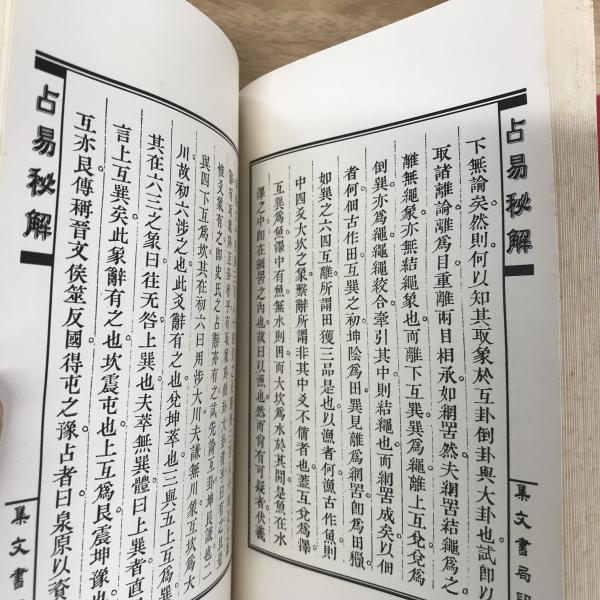 占易秘解
集文書局印
下無論矣然則何以知其取象於互卦倒卦與大卦也試即以
取諸離論離爲目重離兩目相承如網罟然夫網罟結繩爲之
離無繩象亦無結繩象也而離下互巽爲繩離上互兌兌爲
倒巽亦爲繩繩繩絞合牽引其中則結繩也而網罟成矣以佃
者何佃古作田互巽之初坤陰爲田巽見離爲網罟即爲田獵
如巽之六四互離所謂田獲三品是也以漁者何漁古作魚則
中四爻大坎之象繫辭所謂非其中爻不備者也蓋互兌爲澤
互巽爲魚澤中有魚無水則困而大坎爲水於其間是魚在水
澤之中即在網罟之內也故曰以漁也然而尚有可疑者伏羲
惟爻象有之即史氏之占辭亦有之試先論互卦坤艮謙也二
與四下互爲坎其在初六曰用涉大川夫謙無川象互坎爲大
川故初六涉之也此爻辭有之也兌坤萃也三與五上互爲巽
其在六三之象曰往无咎上巽也夫萃無巽體曰上巽者直
言上互巽矣此象辭有之也坎震屯也上互爲艮震坤豫也
互亦艮傳稱晉文侯筮反國得屯之豫占者曰泉原以資
占易秘解
集文書